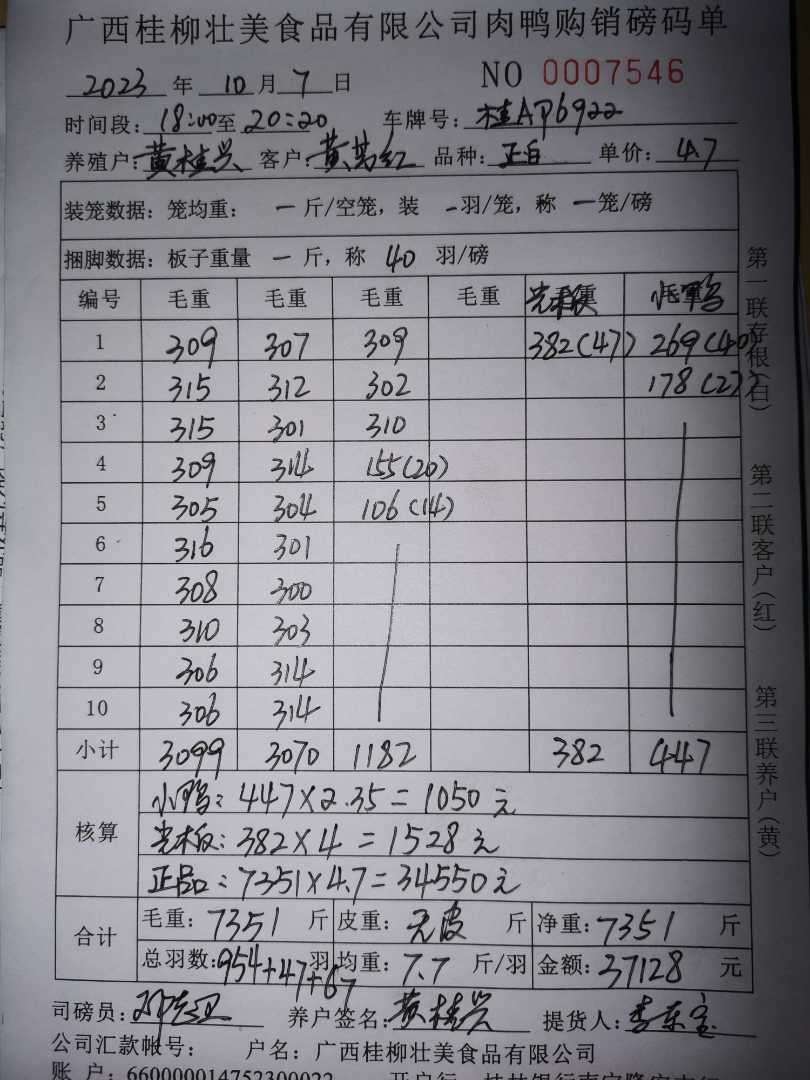 广西桂柳壮美食品有限公司肉鸭购销磅码单
2023 年 10 月 7 日 NO 0007546
时间段: 18:00 至 20:20 车牌号: 桂AP6922
养殖户: 黄桂兴 客户: 黄 红 品种: 正白 单价: 4.7
装笼数据: 笼均重: 一 斤/空笼, 装 一 羽/笼, 称 一 笼/磅
捆脚数据: 板子重量 一 斤, 称 40 羽/磅
编号 毛重 毛重 毛重 毛重 光板 小鸭
1 309 307 309 382(47) 269(40)
2 315 312 302 178(27)
3 315 301 310
4 309 314 155(20)
5 305 304 106(14)
6 316 301
7 308 300
8 310 303
9 306 314
10 306 314
小计 3099 3070 1182 382 447
核算
小鸭: 447×2.35=1050元
光板: 382×4=1528元
正品: 7351×4.7=34550元
合计
毛重: 7351 斤 皮重: 无皮 斤 净重: 7351 斤
总羽数: 954+47+67 羽 均重: 7.7 斤/羽 金额: 37128 元
司磅员: 养户签名: 黄桂兴 提货人: 李东宝
公司汇款帐号: 户名: 广西桂柳壮美食品有限公司
账 户: 660000014752300022 开户行: 桂林银行南宁隆安支行
第一联存根(白)
第二联客户(红)
第三联养户(黄)